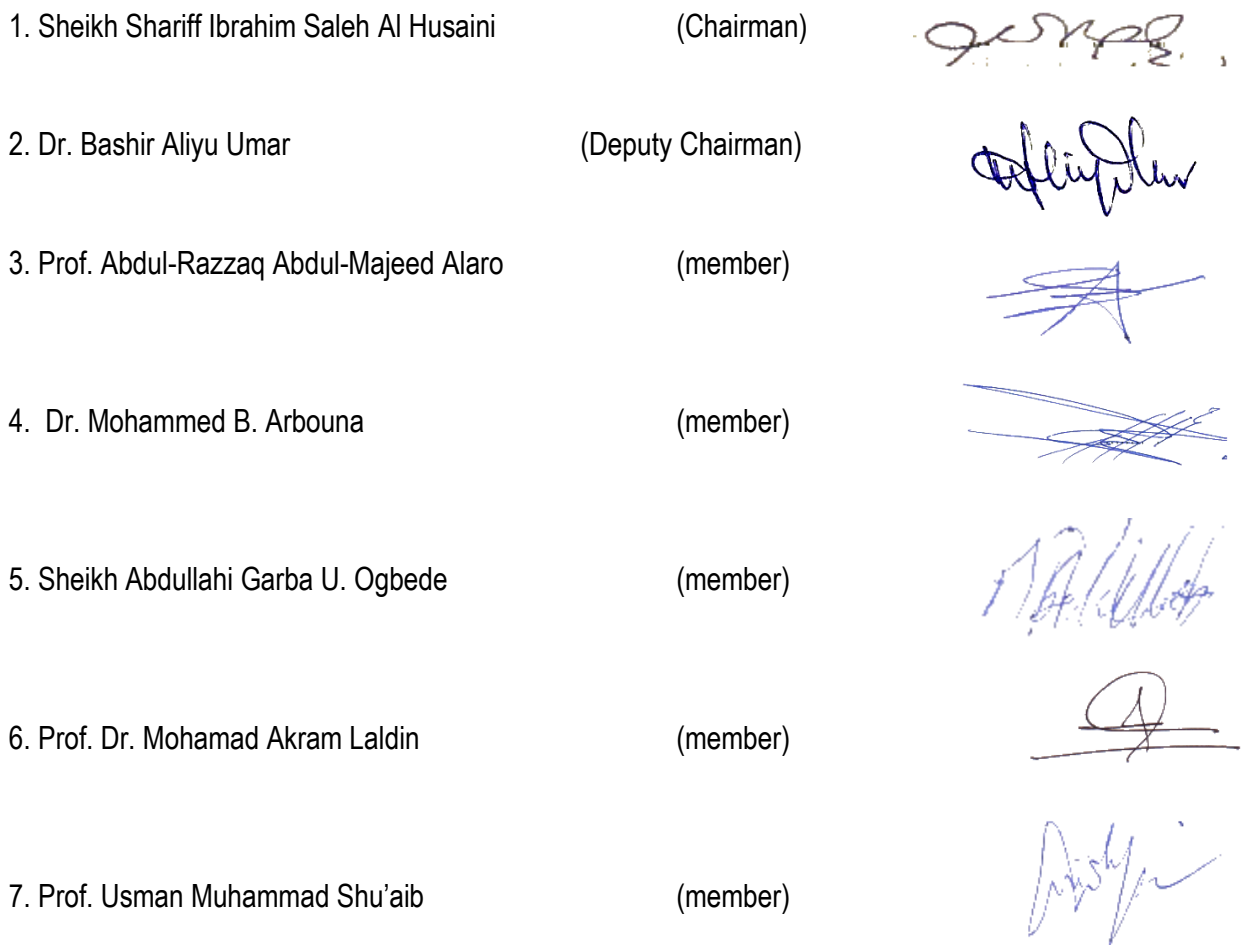 1. Sheikh Shariff Ibrahim Saleh Al Husaini (Chairman)
2. Dr. Bashir Aliyu Umar (Deputy Chairman)
3. Prof. Abdul-Razzaq Abdul-Majeed Alaro (member)
4. Dr. Mohammed B. Arbouna (member)
5. Sheikh Abdullahi Garba U. Ogbede (member)
6. Prof. Dr. Mohamad Akram Laldin (member)
7. Prof. Usman Muhammad Shu’aib (member)